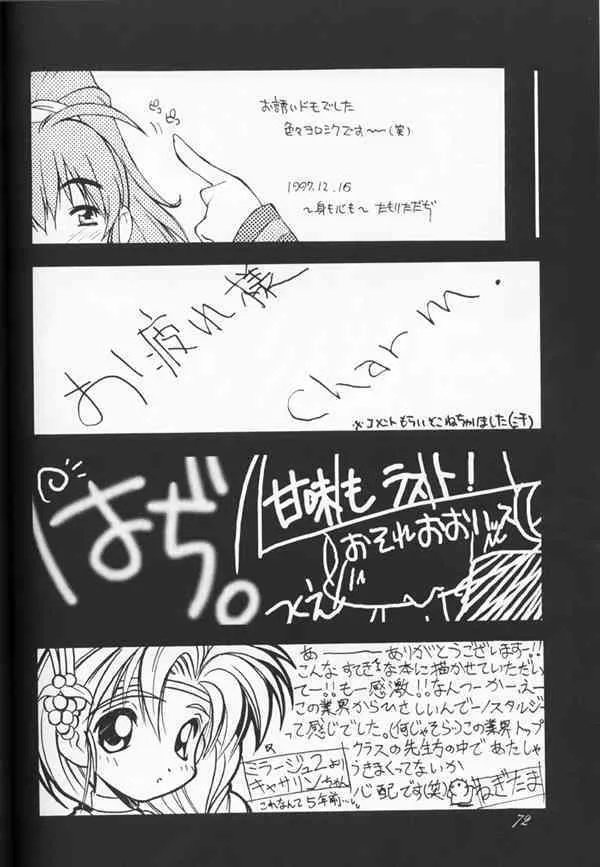 ピピッ
お誘いドモでした
色々ヨロシクです〜〜(笑)
1997.12.16
〜身も心も〜 たもりただぢ
お疲れ様
charm.
※コメントもらいそこねちゃいました(ミチ)
はぢ。
甘味も ラスト!
おそれおおいッス
あ——ありがとうございますー!!
こんな すてきな本に描かせていただい
てー!!も一感激!!なんつーかーえー
この業界からひさしいんでノスタルジ
って感じでした。(何じゃそら)この業界トップ
クラスの先生方の中で あたしゃ
うきまくってないか
心配です(笑) ねぎたま
ミラージュ2より
キャサリンちゃん
これなんて5年前…。
72